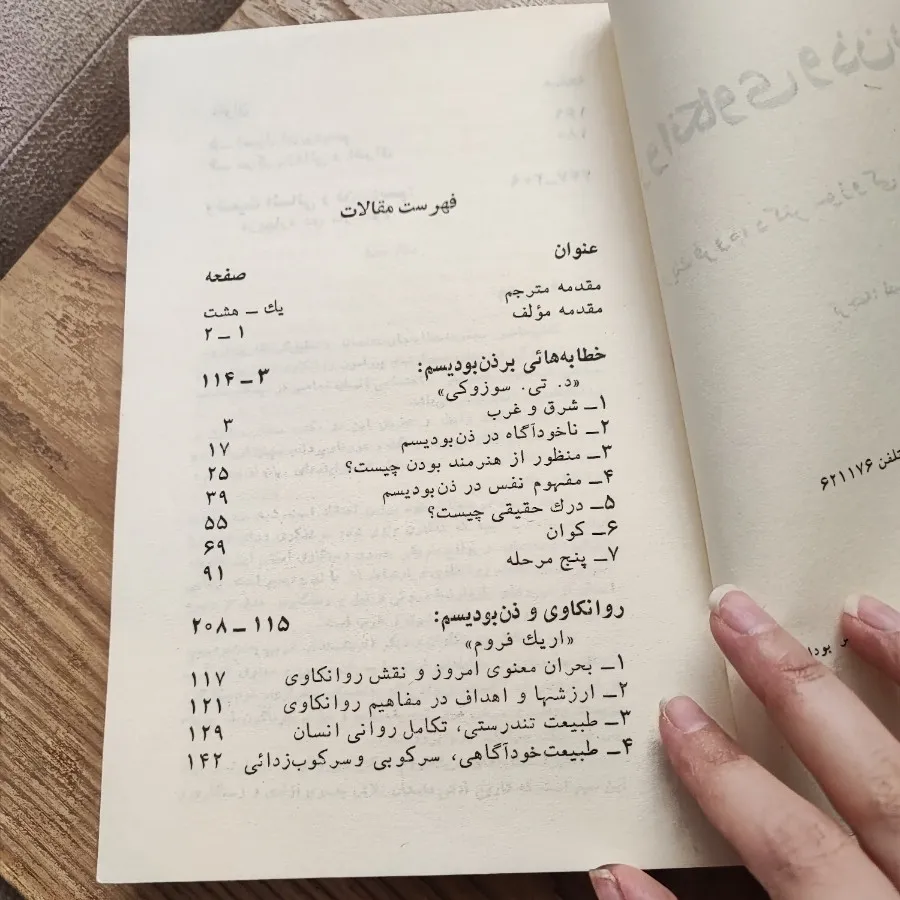 فهرست مقالات
عنوان صفحه
مقدمه مترجم یك ـ هشت
مقدمه مؤلف ۱ـ۲
خطابه‌هائی برذن‌بودیسم: ۳ـ۱۱۴
«د. تی. سوزوکی»
۱ـ شرق و غرب ۳
۲ـ ناخودآگاه در ذن‌بودیسم ۱۷
۳ـ منظور از هنرمند بودن چیست؟ ۲۵
۴ـ مفهوم نفس در ذن‌بودیسم ۳۹
۵ـ درك حقیقی چیست؟ ۵۵
۶ـ کوان ۶۹
۷ـ پنج مرحله ۹۱
روانکاوی و ذن‌بودیسم: ۱۱۵ـ۲۰۸
«اریك فروم»
۱ـ بحران معنوی امروز و نقش روانکاوی ۱۱۷
۲ـ ارزشها و اهداف در مفاهیم روانکاوی ۱۲۱
۳ـ طبیعت تندرستی، تکامل روانی انسان ۱۲۹
۴ـ طبیعت‌خودآگاهی، سرکوبی وسرکوب‌زدائی ۱۴۲
۶۲۱۱۷۶